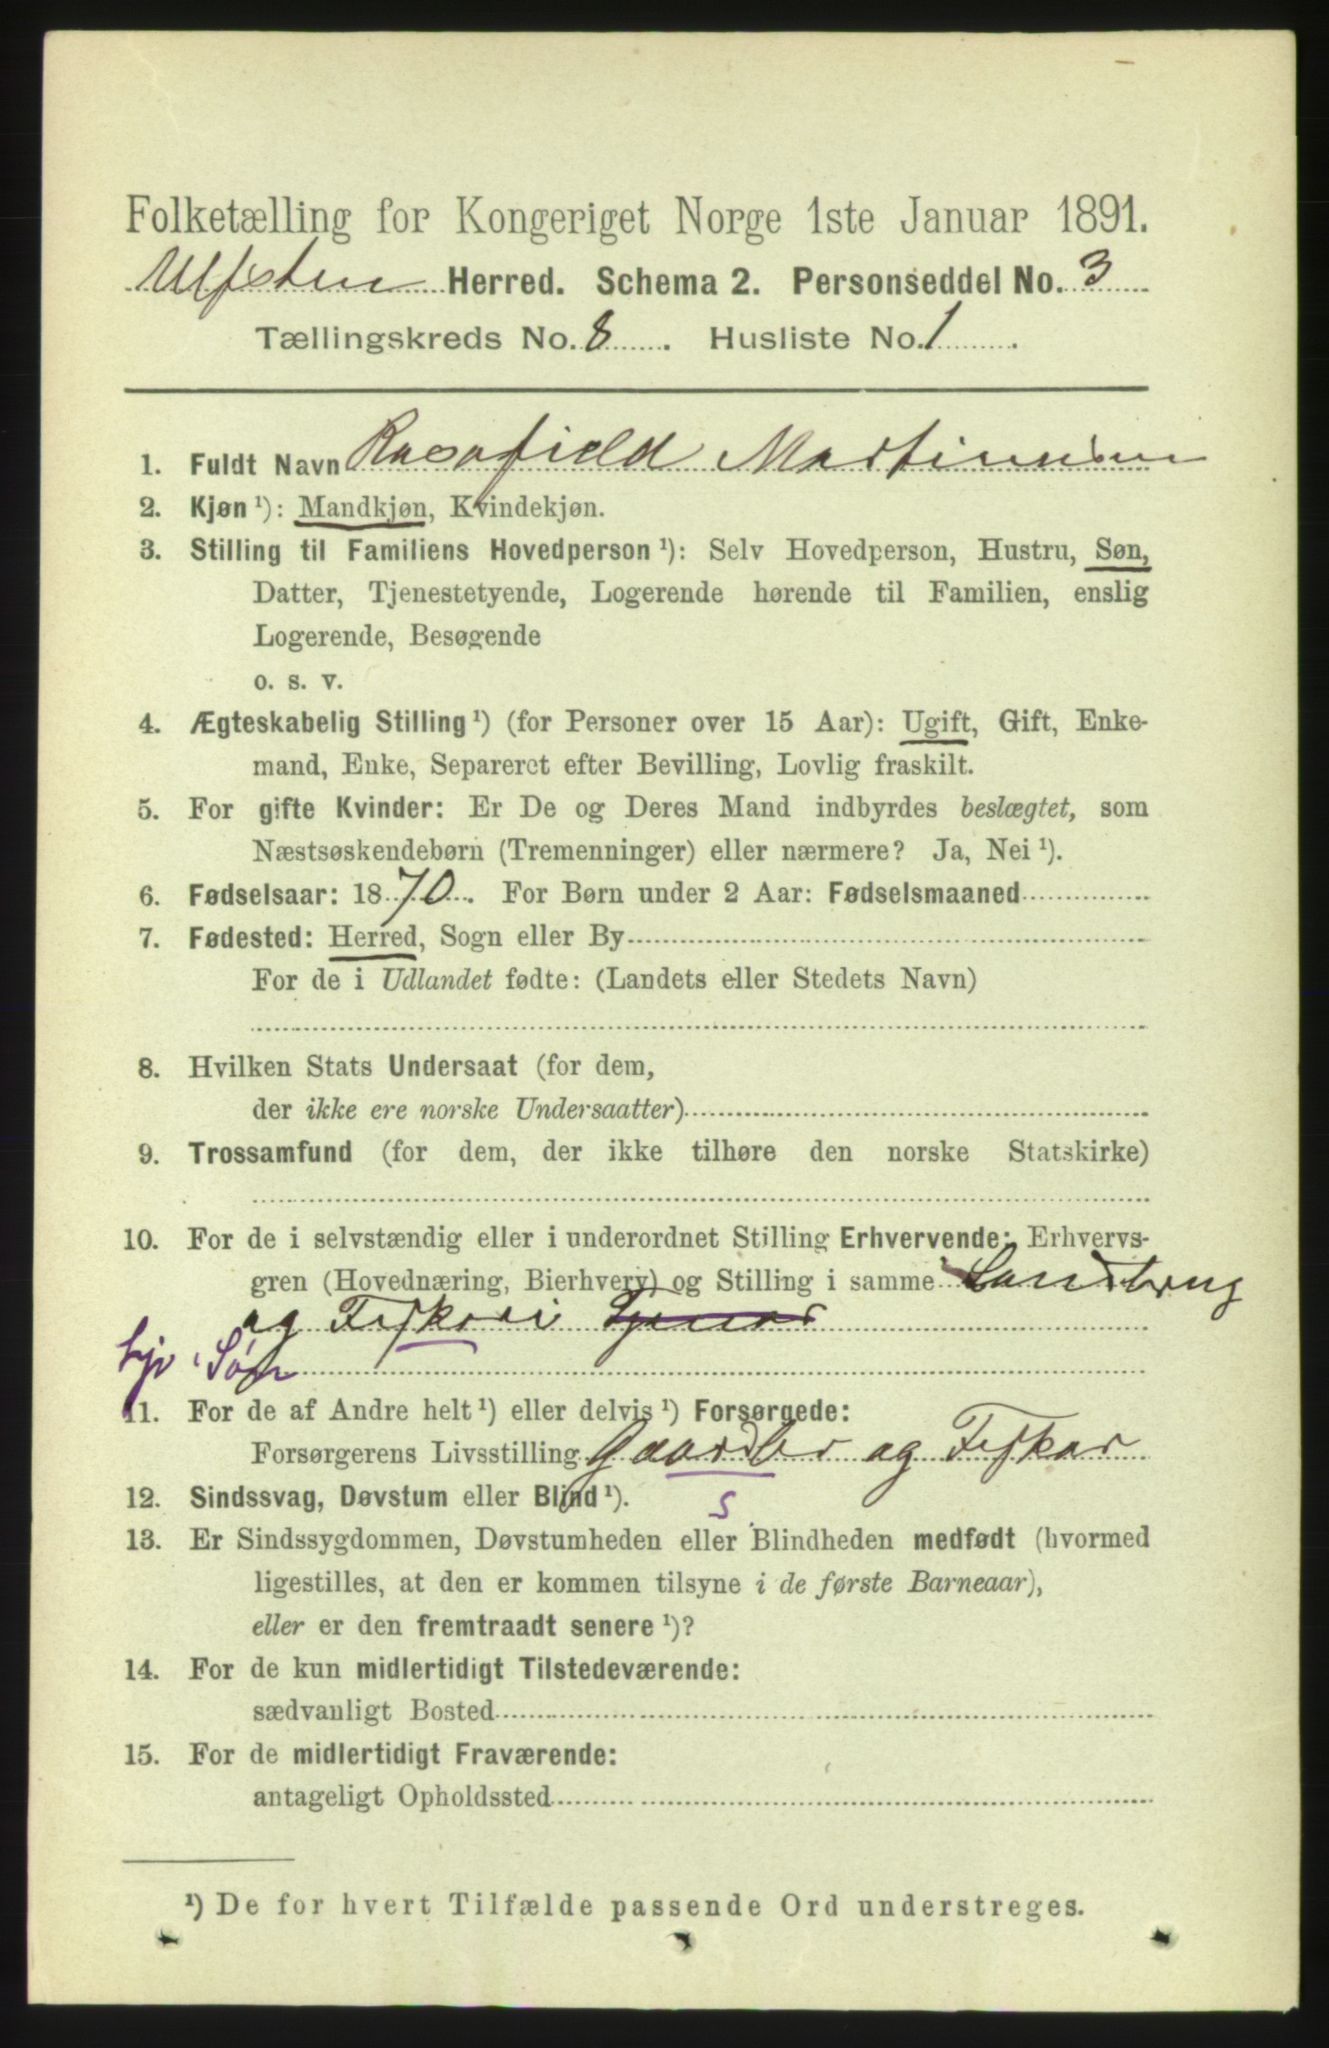 Folketælling for Kongeriget Norge 1ste Januar 1891.
Ulfsten Herred. Schema 2. Personseddel No. 3
Tællingskreds No. 8. Husliste No. 1.
1. Fuldt Navn Rasafield Martinusen
2. Kjøn ¹): Mandkjøn, Kvindekjøn.
3. Stilling til Familiens Hovedperson ¹): Selv Hovedperson, Hustru, Søn,
Datter, Tjenestetyende, Logerende hørende til Familien, enslig
Logerende, Besøgende
o. s. v.
4. Ægteskabelig Stilling ¹) (for Personer over 15 Aar): Ugift, Gift, Enke-
mand, Enke, Separeret efter Bevilling, Lovlig fraskilt.
5. For gifte Kvinder: Er De og Deres Mand indbyrdes beslægtet, som
Næstsøskendebørn (Tremenninger) eller nærmere? Ja, Nei ¹).
6. Fødselsaar: 1870. For Børn under 2 Aar: Fødselsmaaned
7. Fødested: Herred, Sogn eller By
For de i Udlandet fødte: (Landets eller Stedets Navn)
8. Hvilken Stats Undersaat (for dem,
der ikke ere norske Undersaatter)
9. Trossamfund (for dem, der ikke tilhøre den norske Statskirke)
10. For de i selvstændig eller i underordnet Stilling Erhvervende: Erhvervs-
gren (Hovednæring, Bierhverv) og Stilling i samme Landbrug
og Fiskeri
Søn
11. For de af Andre helt ¹) eller delvis ¹) Forsørgede:
Forsørgerens Livsstilling Gaardbr og Fiskar
12. Sindssvag, Døvstum eller Blind ¹). S
13. Er Sindssygdommen, Døvstumheden eller Blindheden medfødt (hvormed
ligestilles, at den er kommen tilsyne i de første Barneaar),
eller er den fremtraadt senere ¹)?
14. For de kun midlertidigt Tilstedeværende:
sædvanligt Bosted
15. For de midlertidigt Fraværende:
antageligt Opholdssted
¹) De for hvert Tilfælde passende Ord understreges.